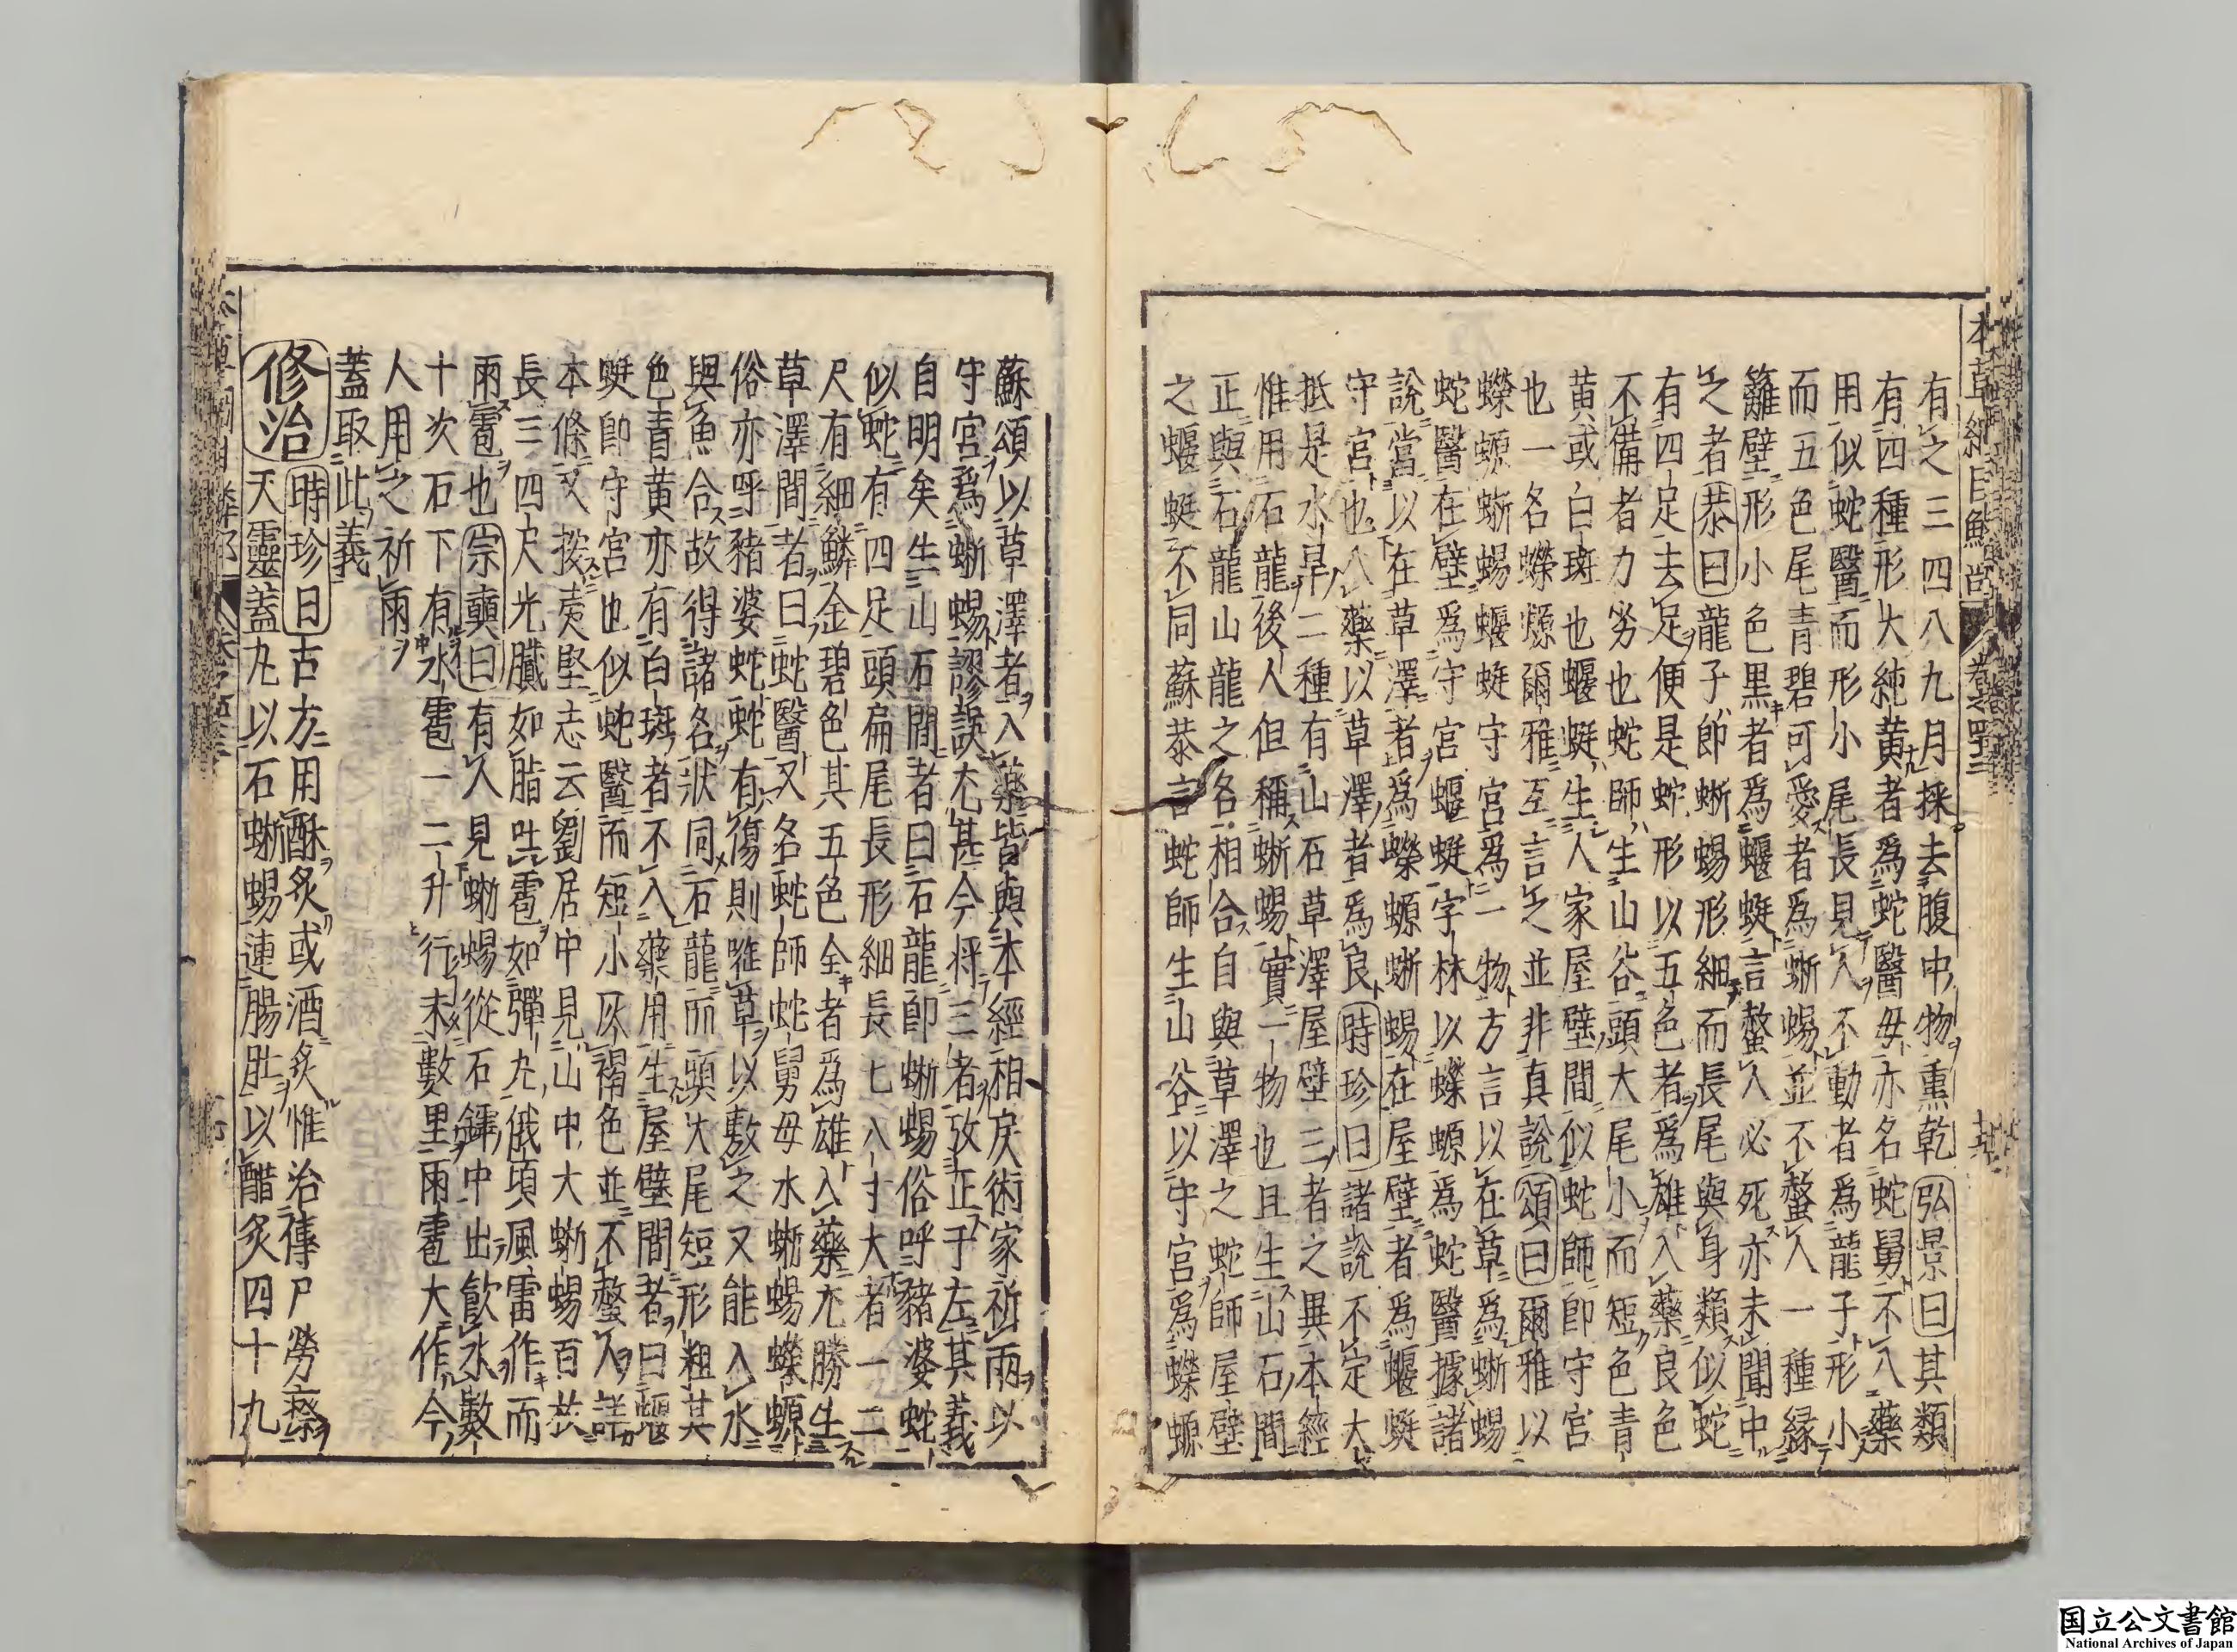 有之三四八九月採去腹中物熏乾弘景曰其類
有四種形大純黃者爲蛇醫母亦名蛇舅不入藥
用似蛇醫而形小尾長見人不動者爲龍子形小
而五色尾青碧可愛者爲蜥蜴並不螫人一種緣
籬壁形小色黑者爲蝘蜓言螫人必死亦未聞中
之者恭曰龍子即蜥蜴形細而長尾與身類似蛇
有四足去足便是蛇形以五色者爲雄入藥良色
不備者力劣也蛇師生山谷頭大尾小而短色青
黃或白斑也蝘蜓生人家屋壁間似蛇師即守宮
也一名蠑螈爾雅互言之並非真說頌曰爾雅以
蠑螈蜥蜴蝘蜓守宮爲一物方言以在草爲蜥蜴
蛇醫在壁爲守宮蝘蜓字林以蠑螈爲蛇醫據諸
說當以在草澤者爲蠑螈蜥蜴在屋壁者爲蝘蜓
守宮也入藥以草澤者爲良時珍曰諸說不定大
抵是水旱二種有山石草澤屋壁三者之異本經
惟用石龍後人但稱蜥蜴實一物也且生山石間
正與石龍山龍之名相合自與草澤之蛇師屋壁
之蝘蜓不同蘇恭言蛇師生山谷以守宮爲蠑螈
蘇頌以草澤者入藥皆與本經相戾術家祈雨以
守宮爲蜥蜴謬誤尤甚今將三者攷正于左其義
自明矣生山石間者曰石龍即蜥蜴俗呼豬婆蛇
似蛇有四足頭扁尾長形細長七八寸大者一二
尺有細鱗金碧色其五色全者爲雄入藥尤勝生
草澤間者曰蛇醫又名蛇師蛇舅母水蜥蜴蠑螈
俗亦呼豬婆蛇蛇有傷則啣草以敷之又能入水
與魚合故得諸名狀同石龍而頭大尾短形粗其
色青黃亦有白斑者不入藥用生屋壁間者曰蝘
蜓即守宮也似蛇醫而短小灰褐色並不螫人詳
本條又按夷堅志云劉居中見山中大蜥蜴百枚
長三四尺光膩如脂吐雹如彈丸俄頃風雷作而
雨雹也宗奭曰有人見蜥蜴從石罅中出飲水數
十次石下有水雹一二升行未數里雨雹大作今
人用之祈雨
蓋取此義
修治時珍曰古方用酥炙或酒炙惟治傳尸勞瘵
天靈蓋丸以石蜥蜴連腸肚以醋炙四十九
国立公文書館
National Archives of Japan